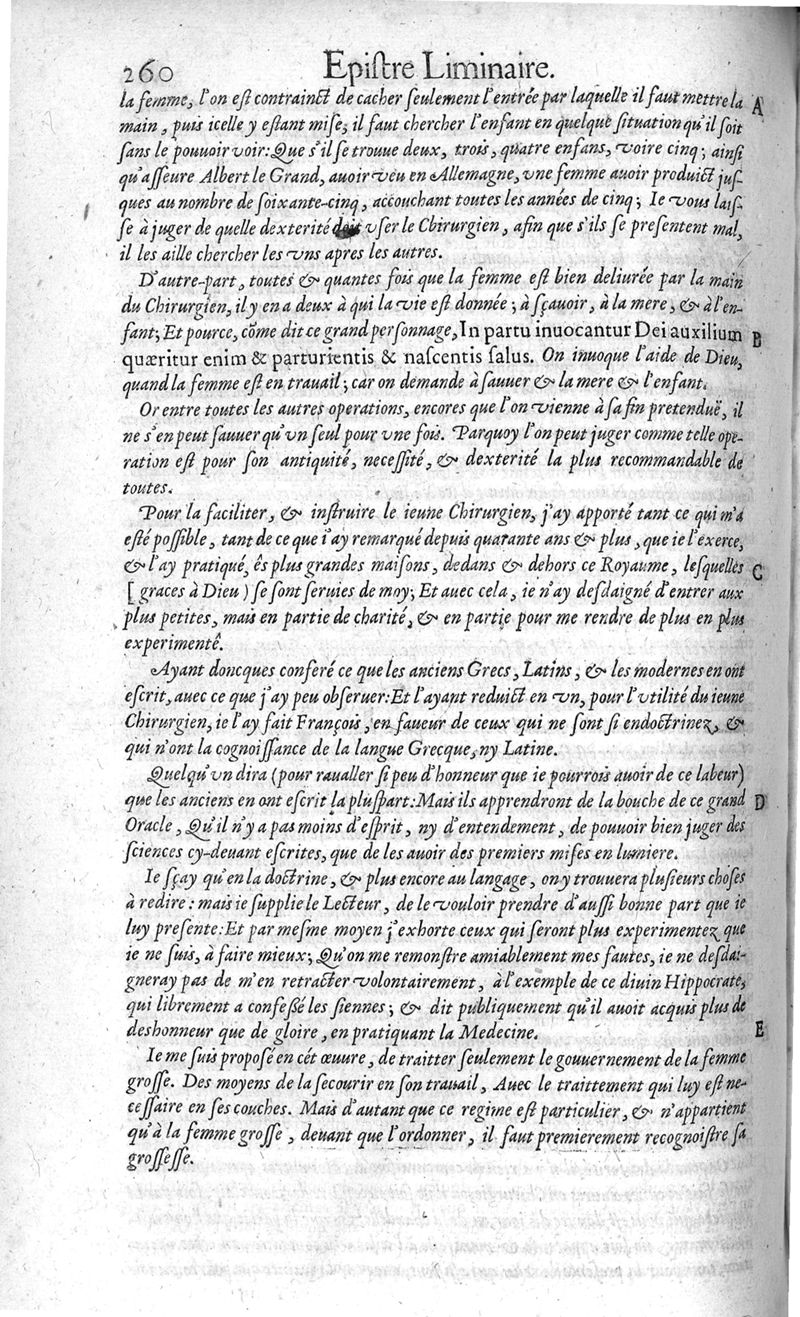 260 Epiſtre Liminaire.
la femme, l'on eſt contrainct de cacher ſeulement l'entrée par laquelle il faut mettre la A
main, puis icelle y eſtant miſe, il faut chercher l'enfant en quelque ſituation qu'il ſoit
ſans le pouuoir voir: Que s'il ſe trouue deux, trois, quatre enfans, voire cinq; ainſi
qu'aſſeure Albert le Grand, auoir veu en Allemagne, vne femme auoir produict juſ-
ques au nombre de ſoixante-cinq, accouchant toutes les années de cinq; Ie vous laiſ-
ſe à juger de quelle dexterité doit vſer le Chirurgien, afin que s'ils ſe preſentent mal,
il les aille chercher les vns apres les autres.
D'autre-part, toutes & quantes fois que la femme eſt bien deliurée par la main
du Chirurgien, il y en a deux à qui la vie eſt donnée; à ſçauoir, à la mere, & à l'en-
fant; Et pource, cõme dit ce grand perſonnage, In partu inuocantur Dei auxilium B
quæritur enim & parturientis & naſcentis ſalus. On inuoque l'aide de Dieu,
quand la femme eſt en trauail; car on demande à ſauuer & la mere & l'enfant.
Or entre toutes les autres operations, encores que l'on vienne à ſa fin pretenduë, il
ne s'en peut ſauuer qu'vn ſeul pour vne fois. Parquoy l'on peut juger comme telle ope-
ration eſt pour ſon antiquité, neceſſité, & dexterité la plus recommandable de
toutes.
Pour la faciliter, & inſtruire le ieune Chirurgien, j'ay apporté tant ce qui m'a
eſté poſſible, tant de ce que i'ay remarqué depuis quarante ans & plus, que ie l'exerce,
& l'ay pratiqué, és plus grandes maiſons, dedans & dehors ce Royaume, leſquelles C
[ graces à Dieu ) ſe ſont ſeruies de moy; Et auec cela, ie n'ay deſdaigné d'entrer aux
plus petites, mais en partie de charité, & en partie pour me rendre de plus en plus
experimenté.
Ayant doncques conferé ce que les anciens Grecs, Latins, & les modernes en ont
eſcrit, auec ce que j'ay peu obſeruer: Et l'ayant reduict en vn, pour l'vtilité du ieune
Chirurgien, ie l'ay fait François, en faueur de ceux qui ne ſont ſi endoctrinez, &
qui n'ont la cognoiſſance de la langue Grecque, ny Latine.
Quelqu'vn dira (pour raualler ſi peu d'honneur que ie pourrois auoir de ce labeur)
que les anciens en ont eſcrit la pluſpart: Mais ils apprendront de la bouche de ce grand D
Oracle, Qu'il n'y a pas moins d'eſprit, ny d'entendement, de pouuoir bien juger des
ſciences cy-deuant eſcrites, que de les auoir des premiers miſes en lumiere.
Ie ſçay qu'en la doctrine, & plus encore au langage, on y trouuera pluſieurs choſes
à redire: mais ie ſupplie le Lecteur, de le vouloir prendre d'auſſi bonne part que ie
luy preſente: Et par meſme moyen j'exhorte ceux qui ſeront plus experimentez que
ie ne ſuis, à faire mieux; Qu'on me remonſtre amiablement mes fautes, ie ne deſdai-
gneray pas de m'en retracter volontairement, à l'exemple de ce diuin Hippocrate,
qui librement a confeßé les ſiennes; & dit publiquement qu'il auoit acquis plus de
deshonneur que de gloire, en pratiquant la Medecine. E
Ie me ſuis propoſé en cét œuure, de traitter ſeulement le gouuernement de la femme
groſſe. Des moyens de la ſecourir en ſon trauail, Auec le traittement qui luy eſt ne-
ceſſaire en ſes couches. Mais d'autant que ce regime eſt particulier, & n'appartient
qu'à la femme groſſe, deuant que l'ordonner, il faut premierement recognoiſtre ſa
groſſeſſe.